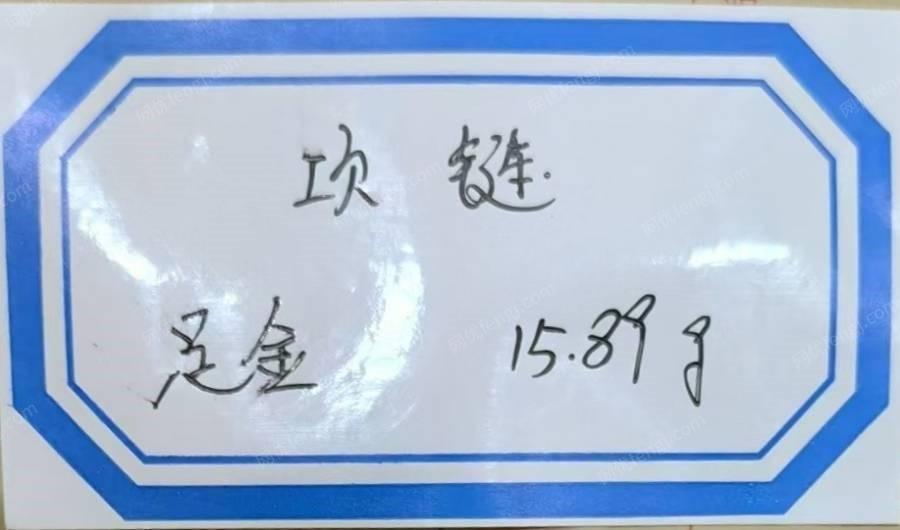 项链.
足金 15.89g